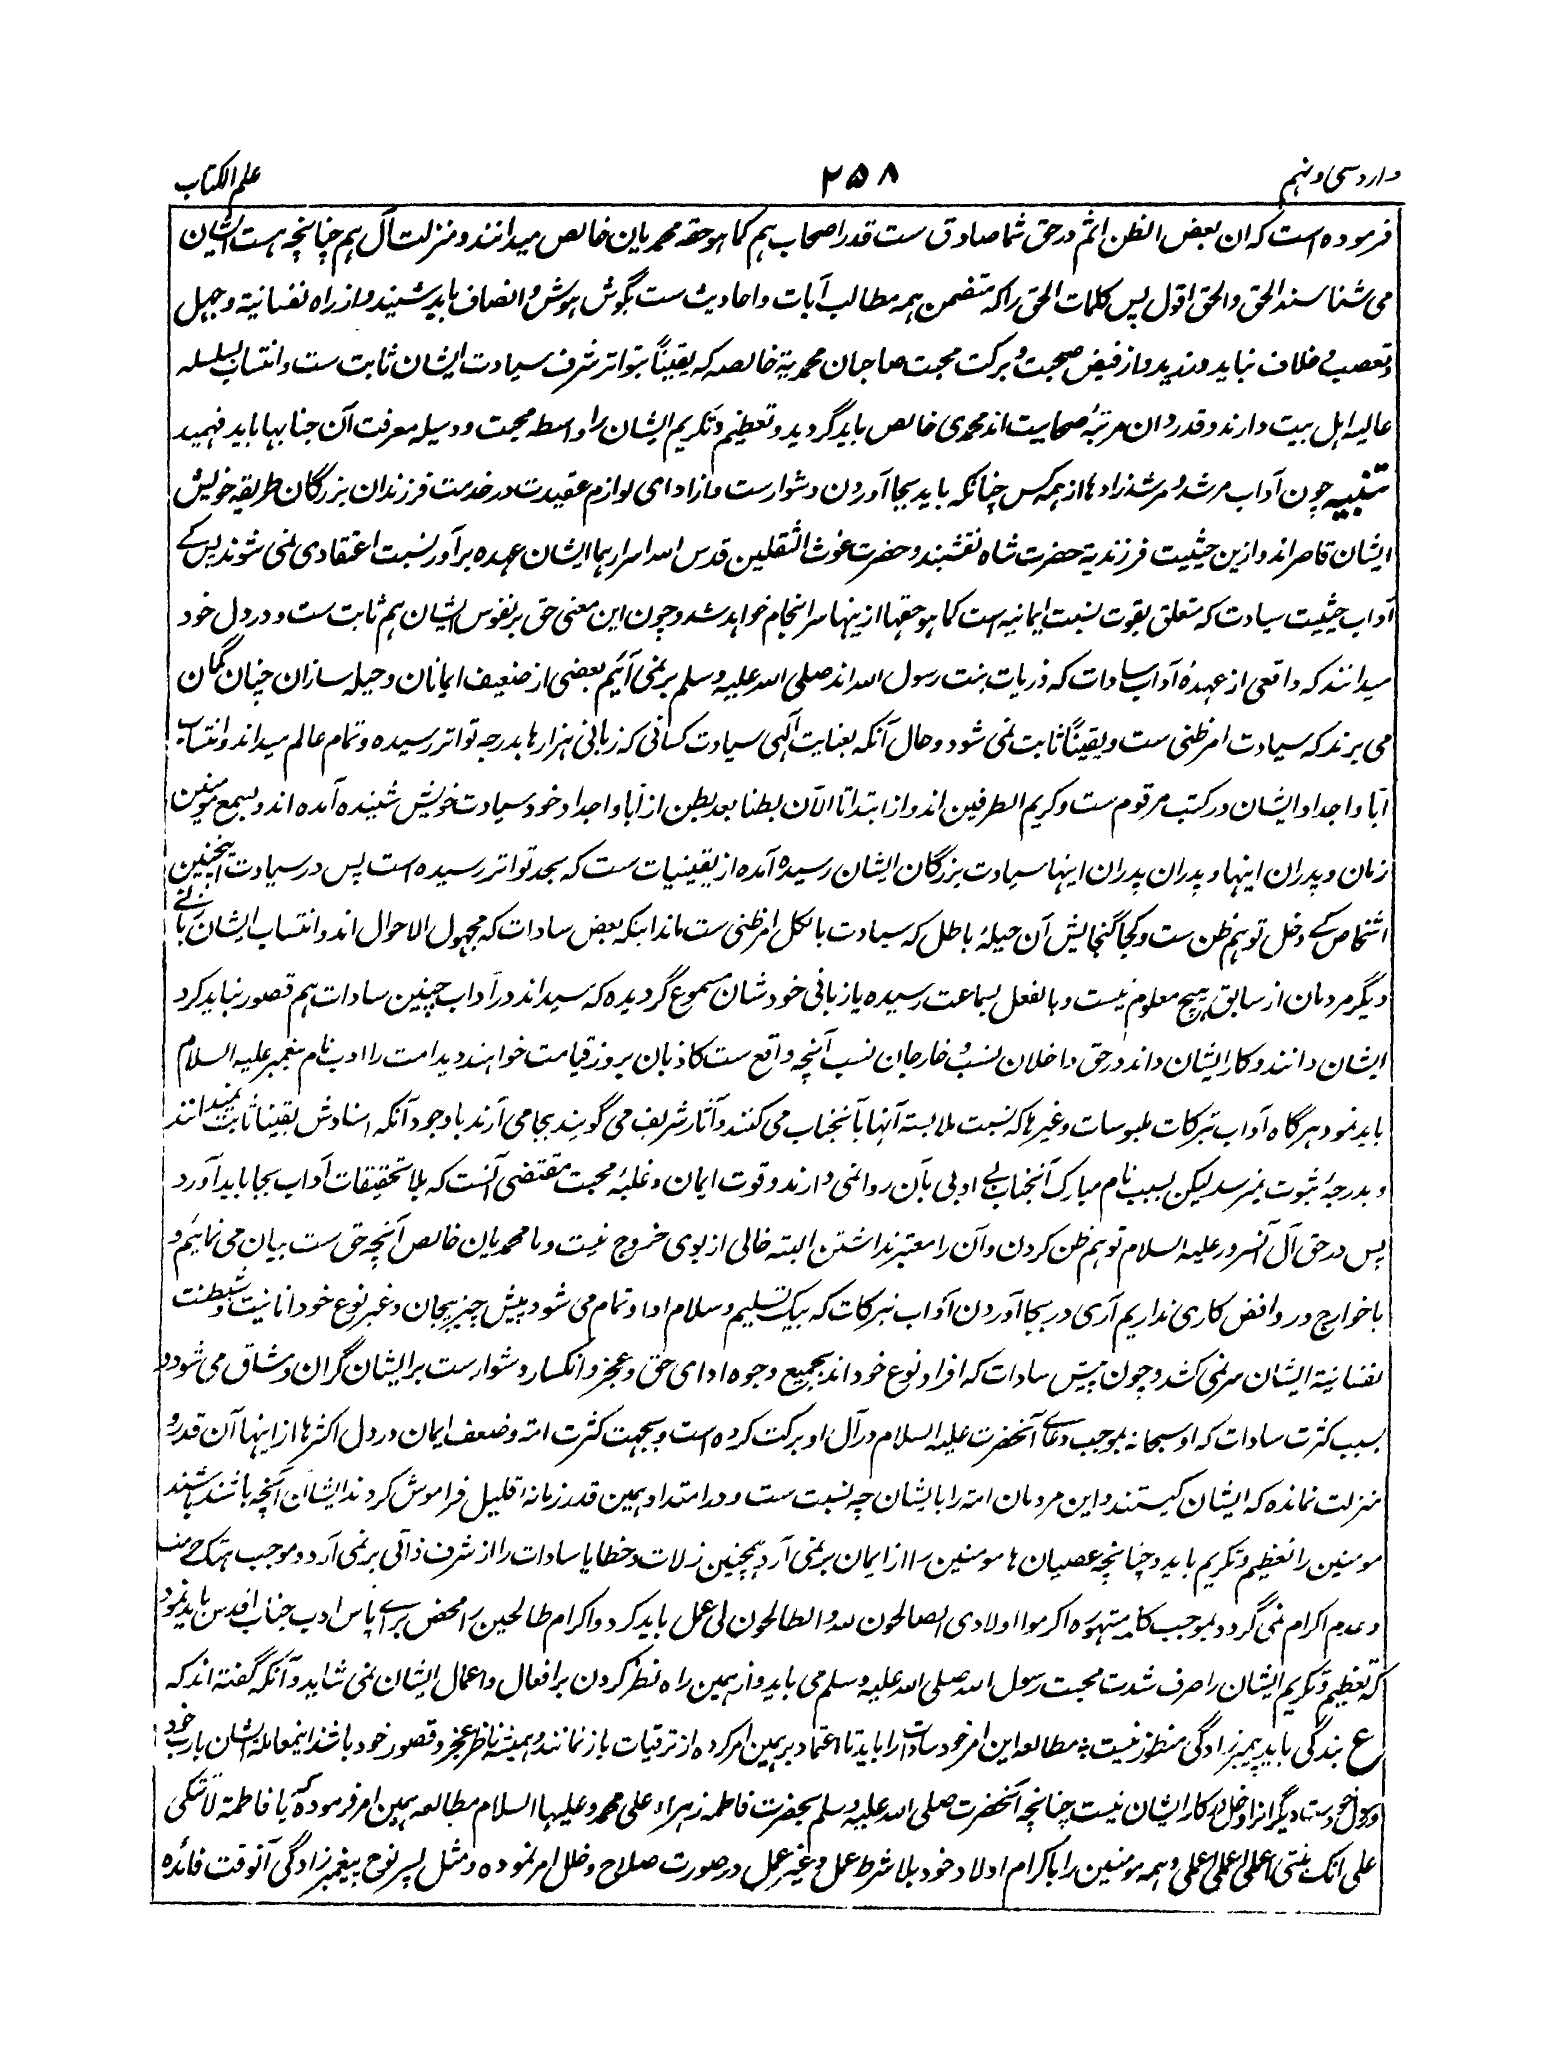 وارد سی و نهم
۲۵۸
علم الکتاب
فرموده است که ان بعض الظن اثم در حق شما صادق ست قدر اصحاب هم کما هو حقه محمدیان خالص میدانند و منزلت آل هم چنانچه هست ایشان
می شناسند الحق والحق اقول پس کلمات الحق را که متضمن همه مطالب آیات و احادیث ست بگوش هوش و انصاف باید شنید و از راه نفسانیة و جهل
و تعصب خلاف نباید ورزید و از فیض صحبت و برکت محبت صاحبان محمدیة خالصه که یقیناً بتواتر شرف سیادت ایشان ثابت ست و انتساب بسلسله
عالیه اهل بیت دارند و قدردان مرتبهٔ صحابیت اند محمدی خالص باید گردید و تعظیم و تکریم ایشان را واسطه محبت و وسیله معرفت آن جنابها باید فهمید
تنبیه چون آداب مرشد و مرشدزادها از همه کس چنانکه باید بجا آوردن دشوارست و از ادای لوازم عقیدت در خدمت فرزندان بزرگان طریقه خویش
ایشان قاصر اند و ازین حیثیت فرزندیة حضرت شاه نقشبند و حضرت غوث الثقلین قدس الله اسرارهما ایشان عهده برآور نسبت اعتقادی نمی شوند پس کے
آداب حیثیت سیادت که متعلق بقوت نسبت ایمانیه است کما هو حقها ازینها سرانجام خواهد شد و چون این معنی حق بر نفوس ایشان هم ثابت ست و در دل خود
میدانند که واقعی از عهدهٔ آداب سادات که ذریات بنت رسول الله اند صلی الله علیه وسلم بر نمی آئیم بعضی از ضعیف ایمانان و حیله سازان چنان گمان
می برند که سیادت امر ظنی ست و یقیناً ثابت نمی شود و حال آنکه بعنایت الٓهی سیادت کسانی که زبانی هزارها بدرجه تواتر رسیده و تمام عالم میداند و انتساب
آبا و اجداد ایشان در کتب مرقوم ست و کریم الطرفین اند و از ابتدا تا الآن بطنا بعد بطن از آبا و اجداد خود سیادت خویش شنیده آمده اند و بسمع مومنین
زمان و پدران اینها و پدران پدران اینها سیادت بزرگان ایشان رسیده آمده از یقینیات ست که بحد تواتر رسیده است پس در سیادت اینچنین
اشخاص کے دخل توهم ظن ست و کجا گنجایش آن حیلهٔ باطل که سیادت بالکل امر ظنی ست ماند اینکه بعض سادات که مجهول الاحوال اند و انتساب ایشان بآبائے
دیگر مردمان از سابق هیچ معلوم نیست و بالفعل بسماعت رسیده یا زبانی خودشان مسموع گردیده که سید اند در آداب چنین سادات هم قصور نباید کرد
ایشان دانند و کار ایشان داند در حق داخلان نسب و خارجان نسب آنچه واقع ست کاذبان بروز قیامت خواهند دید امت را ادب نام پیغمبر علیه السلام
باید نمود هرگاه آداب تبرکات ملبوسات و غیرها که نسبت ملابسته آنها بآنجناب می کنند و آثار شریف می گویند بجا می آرند باوجود آنکه اسنادش یقینا ثابت نمیدانند
و بدرجهٔ ثبوت نمیرسد لیکن بسبب نام مبارک آنجناب بے ادبی بآن روا نمی دارند و قوت ایمان و غلبهٔ محبت مقتضی آنست که بلا تحقیقات آداب بجا باید آورد
پس در حق آل آنسرور علیه السلام توهم ظن کردن و آن را معتبر نداشتن البته خالی از بوی خروج نیست و ما محمدیان خالص آنچه حق ست بیان می نمائیم و
با خوارج و روافض کاری نداریم آری در بجا آوردن آداب تبرکات که بیک تسلیم و سلام ادا و تمام می شود پیش چیز بیجان و غیر نوع خود انانیت و شیطنت
نفسانیة ایشان سر نمی کشد و چون پیش سادات که افراد نوع خود اند بجمیع وجوه ادای حق و عجز و انکسار دشوارست بر ایشان گران و مشاق می شود و
بسبب کثرت سادات که او سبحانه بموجب دعاے آنحضرت علیه السلام در آل او برکت کرده است و بجهت کثرت امته و ضعف ایمان در دل اکثرها از اینها آن قدر و
منزلت نمانده که ایشان کیستند و این مردمان امته را بایشان چه نسبت ست و در امتداد همین قدر زمانه اقلیل فراموش کردند ایشان آنچه باشند باشند
مومنین را تعظیم و تکریم باید و چنانچه عصیان ها مومنین را از ایمان بر نمی آرد همچنین زلات و خطایا سادات را از شرف ذاتی بر نمی آرد و موجب هتک حرمت
و عدم اکرام نمی گردد بموجب کلمه مشهوره اکرموا اولادی الصالحون لله و الطالحون لی عمل باید کرد و اکرام طالحین را محض براے پاس ادب جناب اقدس باید نمود
که تعظیم و تکریم ایشان را صرف شدت محبت رسول الله صلی الله علیه وسلم می باید و از همین راه نظر کردن بر افعال و اعمال ایشان نمی شاید و آنکه گفته اند که
ع بندگی باید پیمبرزادگی منظور نیست مطالعه این امر خود سادات را باید تا اعتماد بر همین امر کرده از ترقیات باز نمانند و همیشه ناظر عجز و قصور خود باشند اینمعامله ایشان با رب خود
و رسول خودست دیگرانرا دخل در کار ایشان نیست چنانچه آنحضرت صلی الله علیه وسلم بحضرت فاطمه زهراء علی محمد و علیها السلام مطالعه همین امر فرموده که یا فاطمة لا تتکی
علی انک بنتی اعملی اعملی اعملی و همه مومنین را باکرام اولاد خود بلا شرط عمل و غیر عمل در صورت صلاح و خلل امر نموده و مثل پسر نوح پیغمبرزادگی آنوقت فائده